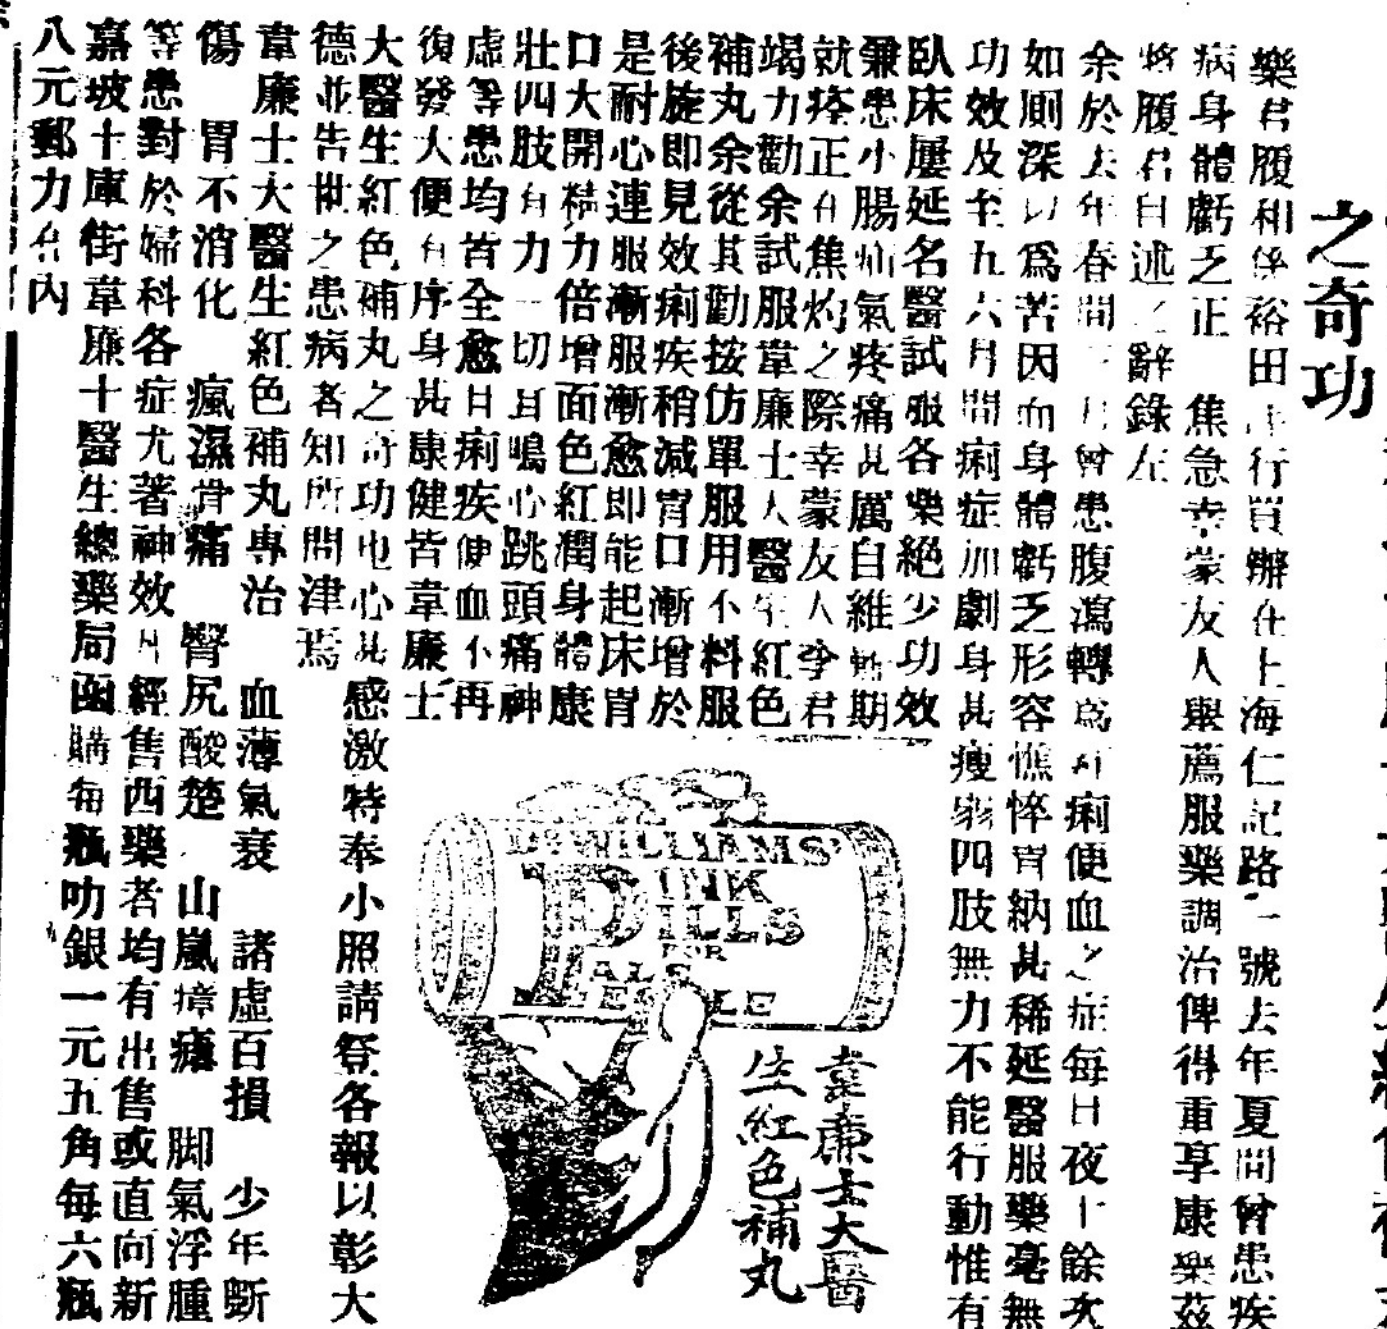 之奇功
樂君履和係裕田洋行買辦在上海仁記路一號去年夏間曾患疾
病身體虧乏正 焦急幸蒙友人舉薦服藥調治俾得重享康樂茲
將履君自述之辭錄左
余於去年春間二月曾患腹瀉轉為紅痢便血之症每日夜十餘次
如厠深以為苦因血身體虧乏形容憔悴胃納甚稀延醫服藥毫無
功效及至五六月間痢症加劇身甚瘦弱四肢無力不能行動惟有
臥床屢延名醫試服各藥絕少功效
兼患小腸疝氣疼痛甚厲自維無期
就痊正在焦灼之際幸蒙友人李君
竭力勸余試服韋廉士大醫生紅色
補丸余從其勸按仿單服用不料服
後旋即見效痢疾稍減胃口漸增於
是耐心連服漸服漸愈即能起床胃
口大開精力倍增面色紅潤身體康
壯四肢有力一切耳鳴心跳頭痛神
虛等患均皆全愈日痢疾便血不再
復發大便有序身甚康健皆韋廉士
大醫生紅色補丸之奇功也心甚感激特奉小照請登各報以彰大
德並告世之患病者知所問津焉
韋廉士大醫生紅色補丸專治 血薄氣衰 諸虛百損 少年斲
傷 胃不消化 瘋濕骨痛 臀尻酸楚 山嵐瘴癘 脚氣浮腫
等患對於婦科各症尤著神效凡經售西藥者均有出售或直向新
嘉坡十庫街韋廉士醫生總藥局函購每瓶叻銀一元五角每六瓶
八元郵力在內
DR WILLIAMS'
PINK
PILLS
FOR
PALE
PEOPLE
韋廉士大醫
生紅色補丸